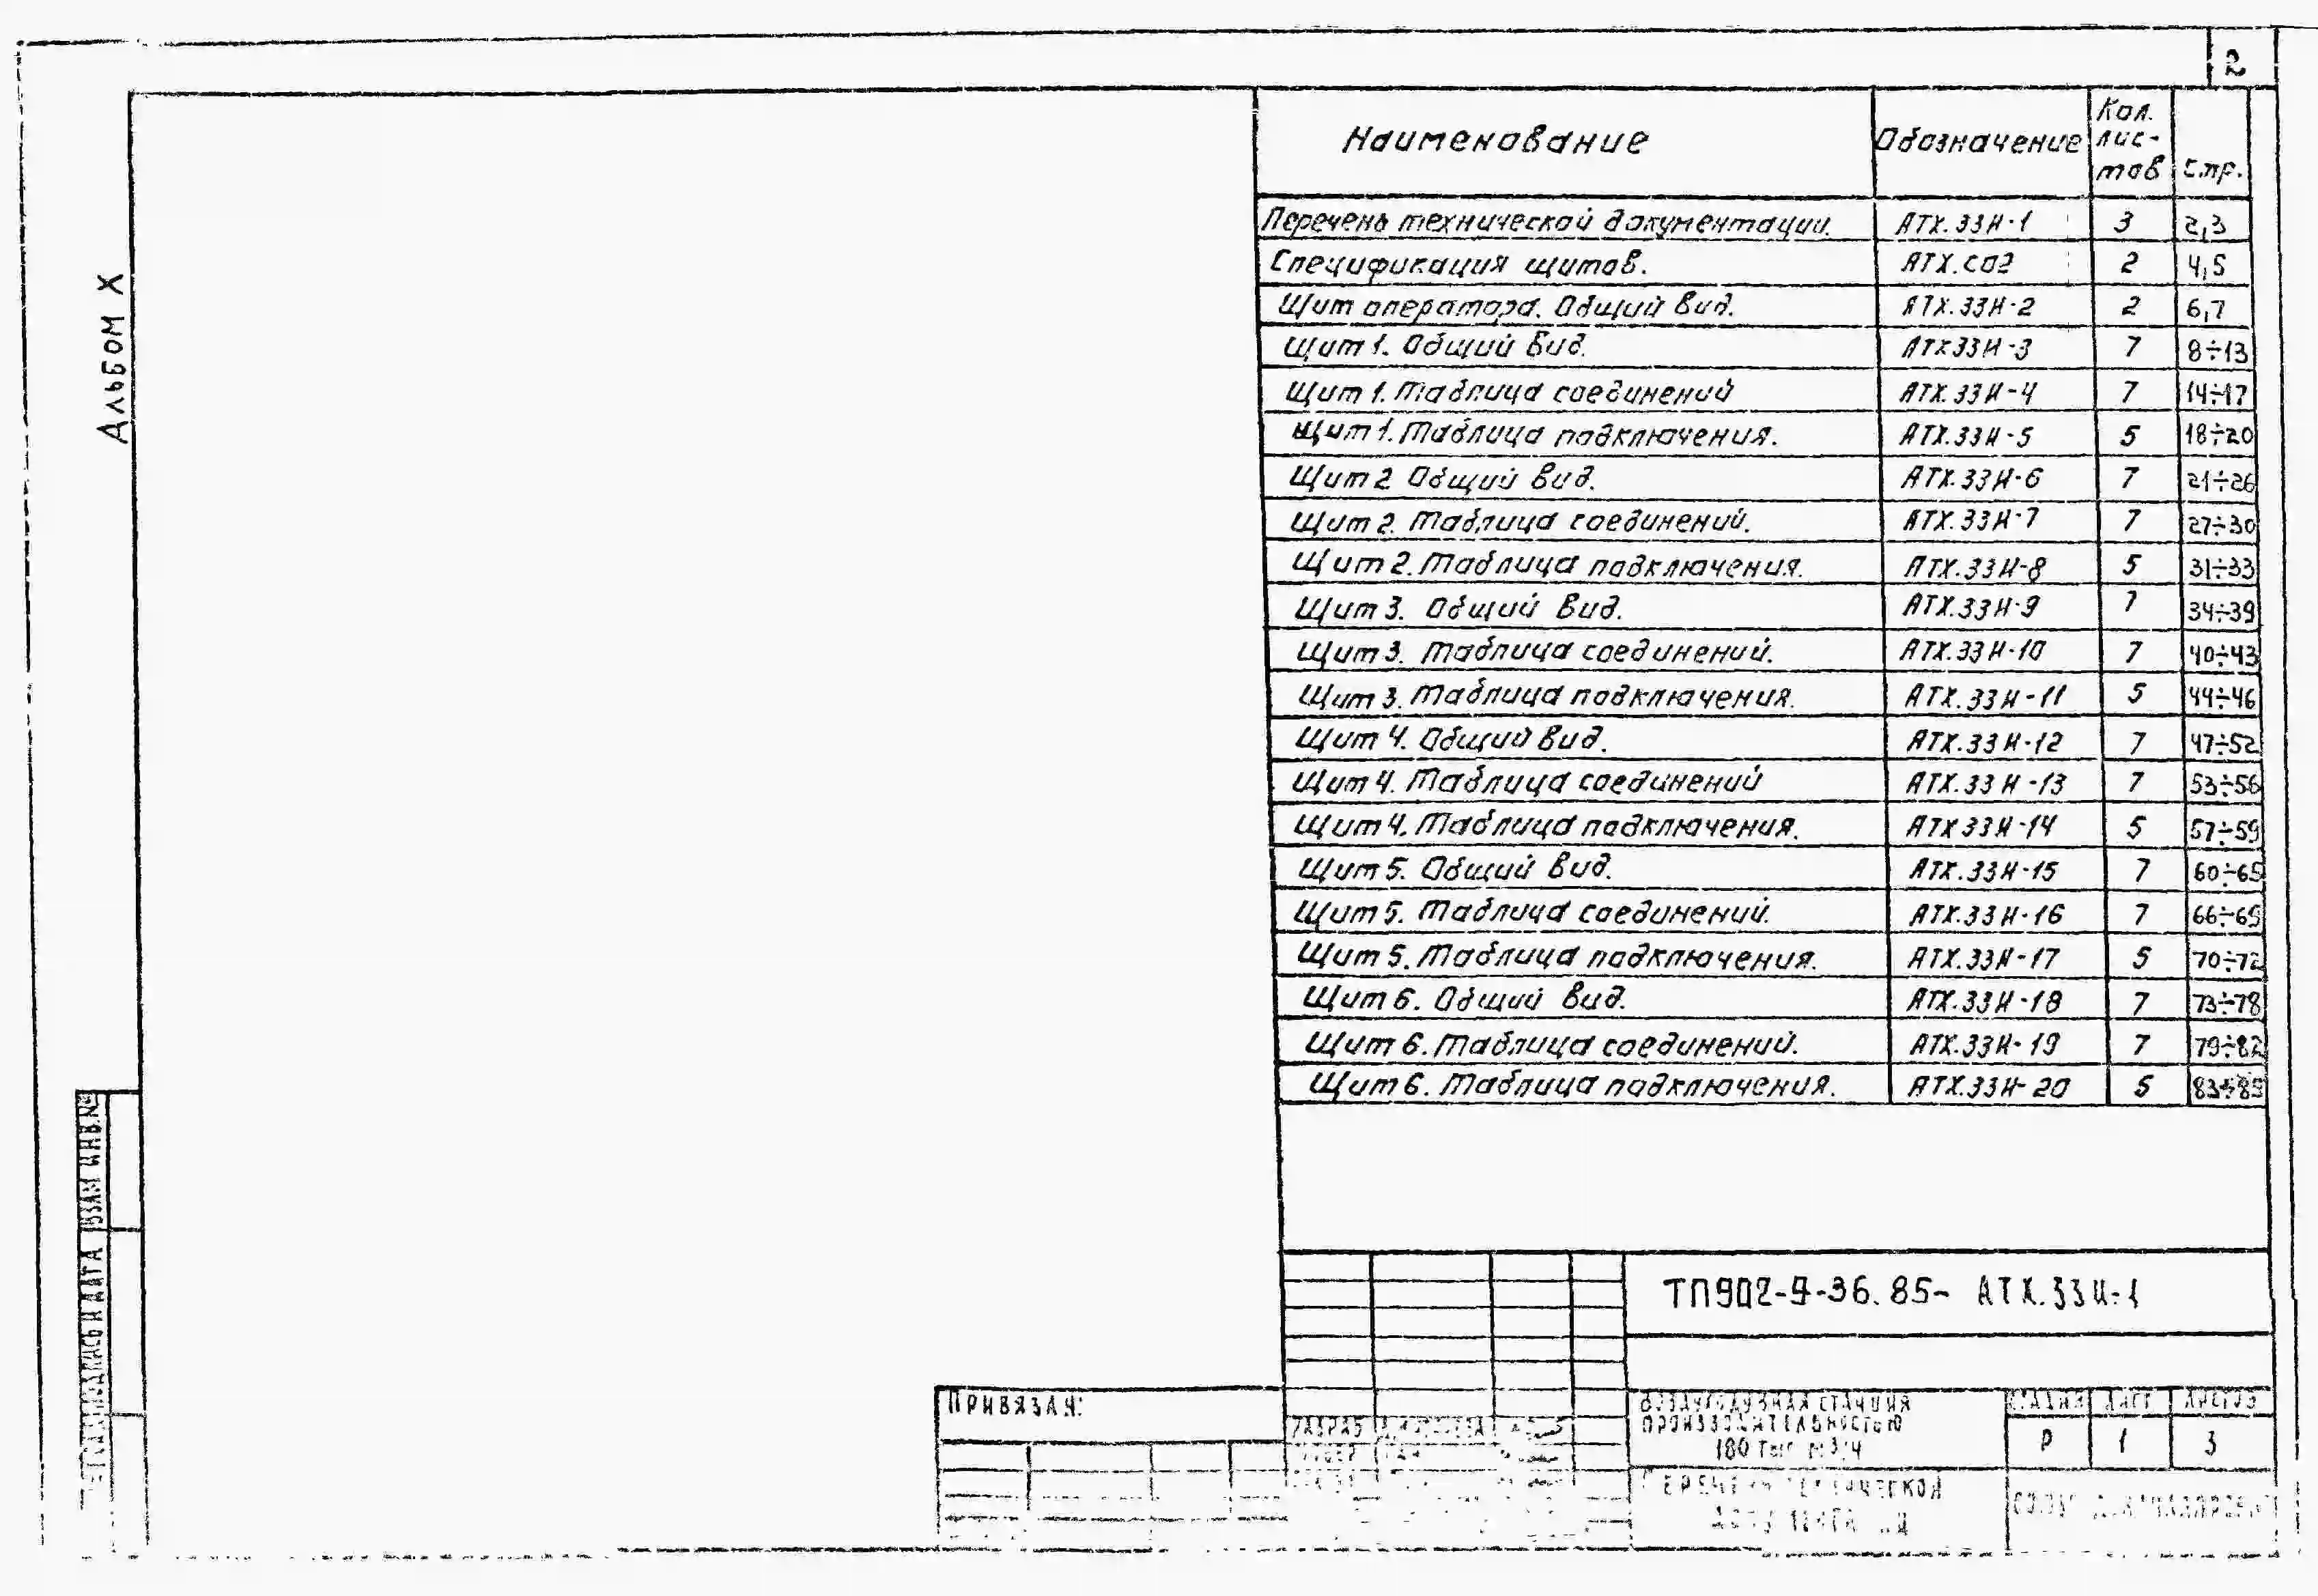 2
Альбом X
Наименование Обозначение Кол. лис- тов Стр.
Перечень технической документации. АТХ.33И-1 3 2,3
Спецификация щитов. АТХ.СО2 2 4,5
Щит оператора. Общий вид. АТХ.33И-2 2 6,7
Щит 1. Общий вид. АТХ33И-3 7 8÷13
Щит 1. Таблица соединений АТХ.33И-4 7 14÷17
Щит 1. Таблица подключения. АТХ.33И-5 5 18÷20
Щит 2 Общий вид. АТХ.33И-6 7 21÷26
Щит 2. Таблица соединений. АТХ.33И-7 7 27÷30
Щит 2. Таблица подключения. АТХ.33И-8 5 31÷33
Щит 3. Общий вид. АТХ.33И-9 7 34÷39
Щит 3. Таблица соединений. АТХ.33И-10 7 40÷43
Щит 3. Таблица подключения. АТХ.33И-11 5 44÷46
Щит 4. Общий вид. АТХ.33И-12 7 47÷52
Щит 4. Таблица соединений АТХ.33И-13 7 53÷56
Щит 4. Таблица подключения. АТХ33И-14 5 57÷59
Щит 5. Общий вид. АТХ.33И-15 7 60÷65
Щит 5. Таблица соединений. АТХ.33И-16 7 66÷69
Щит 5. Таблица подключения. АТХ.33И-17 5 70÷72
Щит 6. Общий вид. АТХ.33И-18 7 73÷78
Щит 6. Таблица соединений. АТХ.33И-19 7 79÷82
Щит 6. Таблица подключения. АТХ.33И-20 5 83÷85
ВЗАМ ИНВ.№
ТП902-9-36.85- АТХ.33И-1
Привязан:
Разраб
Воздуходувная станция
производительностью
180 тыс м3/ч
Стадия Лист Листов
Р 1 3
Перечень технической